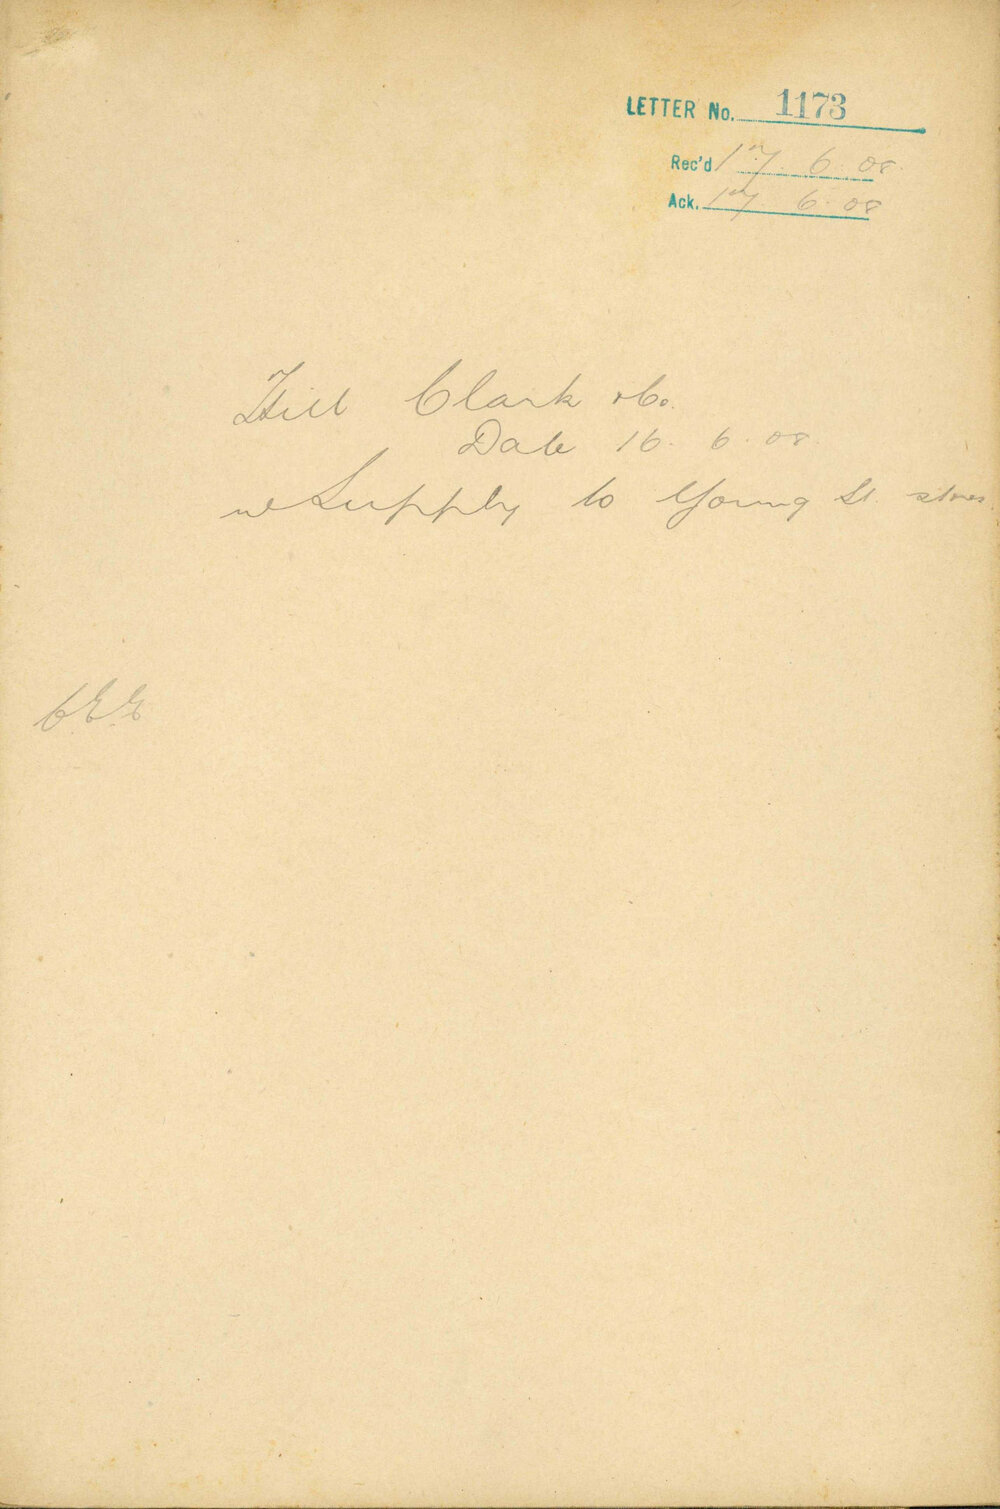 LETTER No. 1173
Rec'd 17. 6. 08.
Ack. 17. 6. 08
Hill Clark & Co.
Date 16. 6. 08.
re Supply to Young St. stores
C.E.E